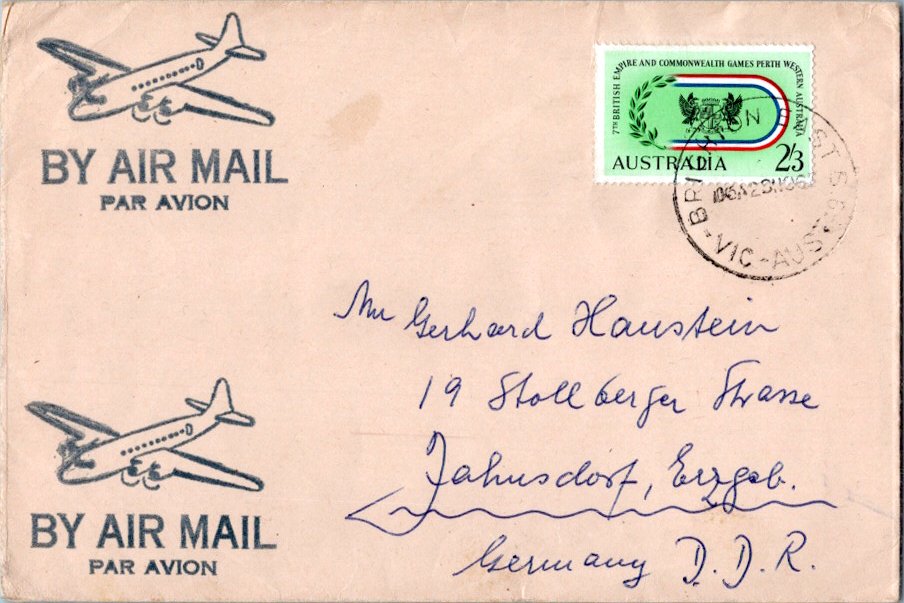 BY AIR MAIL
PAR AVION
7TH BRITISH EMPIRE AND COMMONWEALTH GAMES PERTH WESTERN AUSTRALIA
AUSTRALIA 2/3
BRIGHTON EAST S5
VIC-AUST
Mr Gerhard Haustein
19 Stollberger Strasse
Jahnsdorf, Erzgeb.
Germany D.D.R.
BY AIR MAIL
PAR AVION